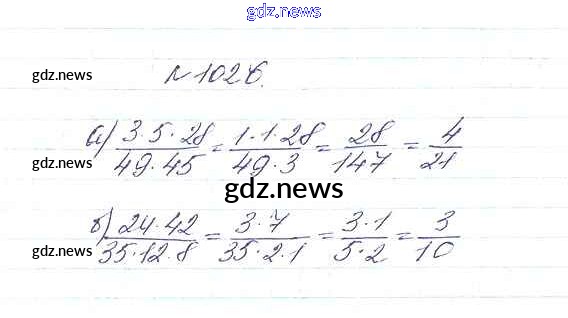 gdz.news
№ 1026.
gdz.news
а) 3·5·28/49·45 = 1·1·28/49·3 = 28/147 = 4/21
gdz.news
gdz.news
б) 24·42/35·12·8 = 3·7/35·2·1 = 3·1/5·2 = 3/10
gdz.news